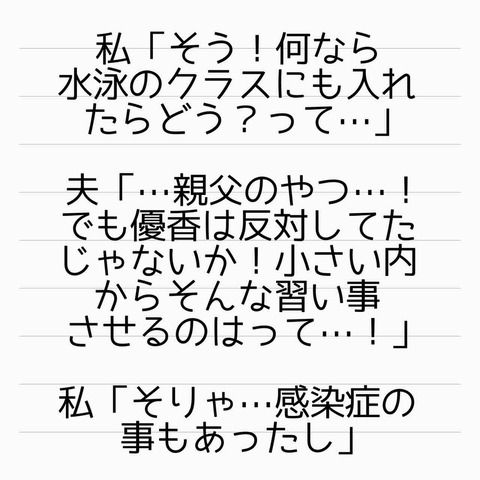 私「そう！何なら
水泳のクラスにも入れ
たらどう？って…」
夫「…親父のやつ…！
でも優香は反対してた
じゃないか！小さい内
からそんな習い事
させるのはって…！」
私「そりゃ…感染症の
事もあったし」